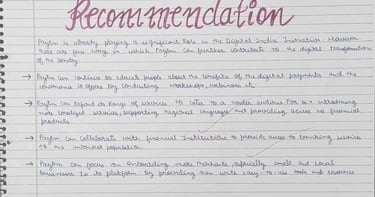 Recommendation
Paytm is already playing a significant Role in the Digital India Initiative. However
here are few ways in which Paytm can further contribute to the digital transformation
of the country
→ Paytm can continue to educate people about the benefits of the digital payments and the
convenience it offers by conducting workshops, webinars etc.
→ Paytm can expand its Range of services to cater to a wider audience For ex introducing
more localized services, supporting Regional languages and providing access to financial
products
→ Paytm can collaborate with financial Institutions to provide access to banking services
to the unbanked population
→ Paytm can focus on Onboarding more Merchants, especially small and local
Businesses to its platform by providing them with easy-to-use tools and resources